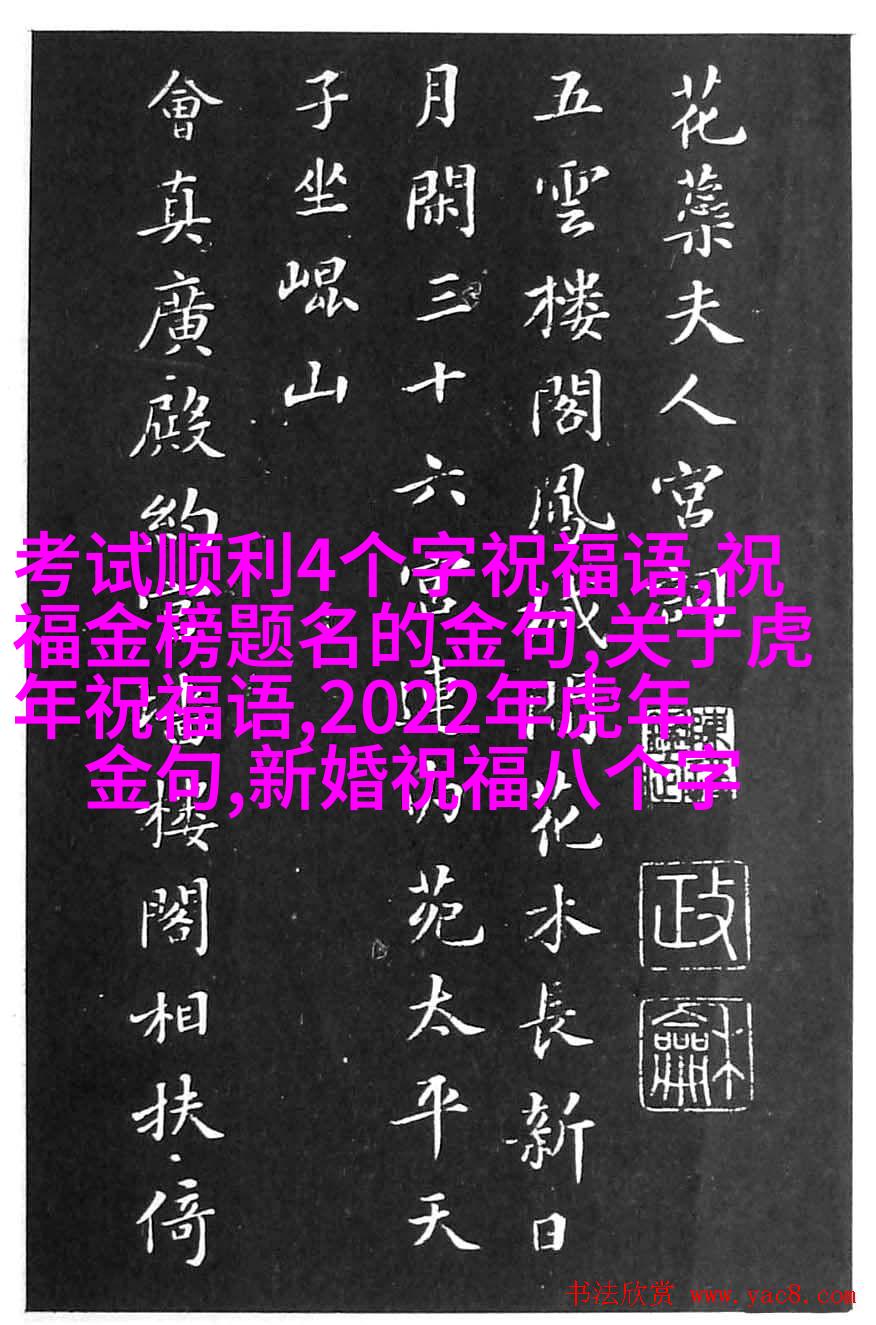 花蘂夫人宮詞
五雲樓閣鳳城間花水長新日
月閑三十六宮連內苑太平天
子坐崐山
會真廣殿約宮墻樓閣相扶倚
政
龢
考试顺利4个字祝福语,祝
福金榜题名的金句,关于虎
年祝福语,2022年虎年
金句,新婚祝福八个字
书法欣赏 www.yac8.com